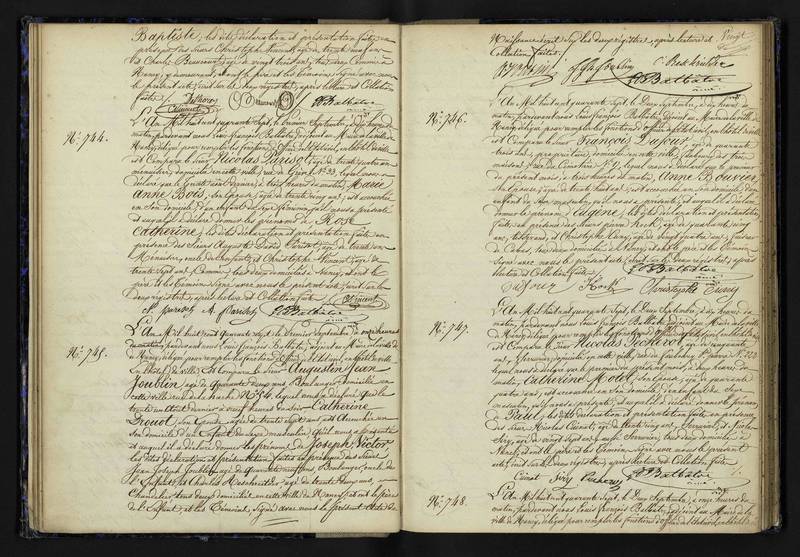 Baptiste, les dites déclaration et présentation faites en
présence des sieurs Christophe Vincent, âgé de trente neuf ans
et Charles Beaucourt, âgé de vingt trois ans, tous deux Commis à
Nancy, y demeurant, et ont le père et les témoins signé avec nous
le présent acte, écrit sur les deux registres, après lecture et Collation
faites.
Vincent
Balbâtre
N.° 744.
L'An Mil huit cent quarante Sept, le premier Septembre,
matin, pardevant nous Louis françois Balbâtre, adjoint au Maire de la ville de
Nancy, délégué pour remplir les fonctions d'Officier de l'état civil, en l'hôtel de ville
est Comparu le Sieur Nicolas Parisot, âgé de trente quatre ans
menuisier, domicilié en cette ville, rue de Grève N.° 33, lequel nous a
déclaré que le trente août dernier, à trois heures du matin, Marie
Anne Bois, son épouse, âgée de trente cinq ans, est accouchée
en son domicile d'un enfant du sexe féminin qu'il nous a présenté
et auquel il a déclaré donner les prénoms de Rose
Catherine, les dites déclaration et présentation faites en
présence des Sieurs Auguste Parisot, âgé de trente ans
Menuisier, oncle de l'enfant, et Christophe Vincent, âgé de
trente Sept ans, Commis, tous deux domiciliés à Nancy, et ont le
père et les témoins signé avec nous le présent acte, écrit sur les
deux registres, après lecture et Collation faites.
Parisot A. Parisot Balbâtre Vincent
N.° 745.
L'An Mil huit cent quarante Sept, le premier Septembre, à onze heures
du matin, pardevant nous Louis françois Balbâtre, adjoint au Maire de la ville
de Nancy, délégué pour remplir les fonctions d'Officier de l'état civil,
en l'hôtel de ville, est Comparu le Sieur Augustin Jean
Joublin, âgé de quarante cinq ans, Boulanger, domicilié en
cette ville, rue de la hache N.° 54, lequel nous a déclaré que le
trente un août dernier à neuf heures du soir Catherine
Drouot, son épouse, âgée de trente sept ans, est accouchée en
son domicile d'un Enfant du Sexe masculin qu'il nous a présenté
et auquel il a déclaré donner les prénoms de Joseph Victor
les dites déclaration et présentation faites en présence des Sieurs
Jean Joseph Joublin, âgé de quarante neuf ans, Boulanger, oncle de
l'Enfant, et
Chandelier, tous deux domiciliés en cette ville de Nancy, et ont le père
de l'Enfant, et les témoins, signé avec nous le présent acte de
Naissance écrit sur les deux registres, après lecture et
Collation faites.
Vingt
Balbâtre
N.° 746.
L'An Mil huit cent quarante Sept, le Deux Septembre, à dix heures du
matin, pardevant nous Louis françois Balbâtre, adjoint au Maire de la ville de
Nancy, délégué pour remplir les fonctions d'officier de l'état civil, en l'hôtel de ville
est Comparu le Sieur François Dufour, âgé de quarante
trois ans, propriétaire, domicilié en cette ville, faubourg des trois
maisons, rue du Cimetière N.° 9, lequel nous a déclaré que le premier
du présent mois, à trois heures du matin, Anne Bouvier,
son épouse, âgée de trente huit ans, est accouchée, en son domicile, d'un
enfant du Sexe masculin, qu'il nous a présenté, et auquel il a déclaré
donner le prénom d'Eugène, les dites déclaration et présentation
faites en présence des Sieurs pierre Koch, âgé de quarante cinq
ans, et Christophe
tous deux domiciliés à Nancy, et ont le père et les témoins
signé avec nous le présent acte, écrit sur les deux registres, après
lecture et Collation faites.
Dufour Koch Christophe Balbâtre
N.° 747.
L'An Mil huit cent quarante Sept, le Deux Septembre, à dix heures du
matin, pardevant nous Louis françois Balbâtre, adjoint au Maire de la ville
de Nancy, délégué pour remplir les fonctions d'officier de l'état civil, en l'hôtel de ville
est Comparu le Sieur Nicolas Pecheyot, âgé de quarante
ans, Serrurier, domicilié en cette ville, rue du faubourg St. Pierre N.° 223
lequel nous a déclaré que le premier du présent mois, à deux heures du
matin, Catherine Modot, son épouse, âgée de quarante
quatre ans, est accouchée en son domicile, d'un enfant du sexe
masculin, qu'il nous a présenté, et auquel il a déclaré donner le prénom
de Paul, les dites déclaration et présentation faites en présence
des Sieurs Nicolas Cuinat, âgé de trente cinq ans, Serrurier, et
Sery, âgé de vingt sept ans, aussi Serrurier, tous deux domiciliés à
Nancy, et ont le père et les témoins signé avec nous le présent
acte, écrit sur les deux registres, après lecture et Collation faites.
Cuinat Sery Balbâtre
N.° 748.
L'An Mil huit cent quarante Sept, le Deux Septembre, à onze heures du
matin, pardevant nous Louis françois Balbâtre, adjoint au Maire de la
ville de Nancy, délégué pour remplir les fonctions d'officier de l'état civil, en l'hôtel de